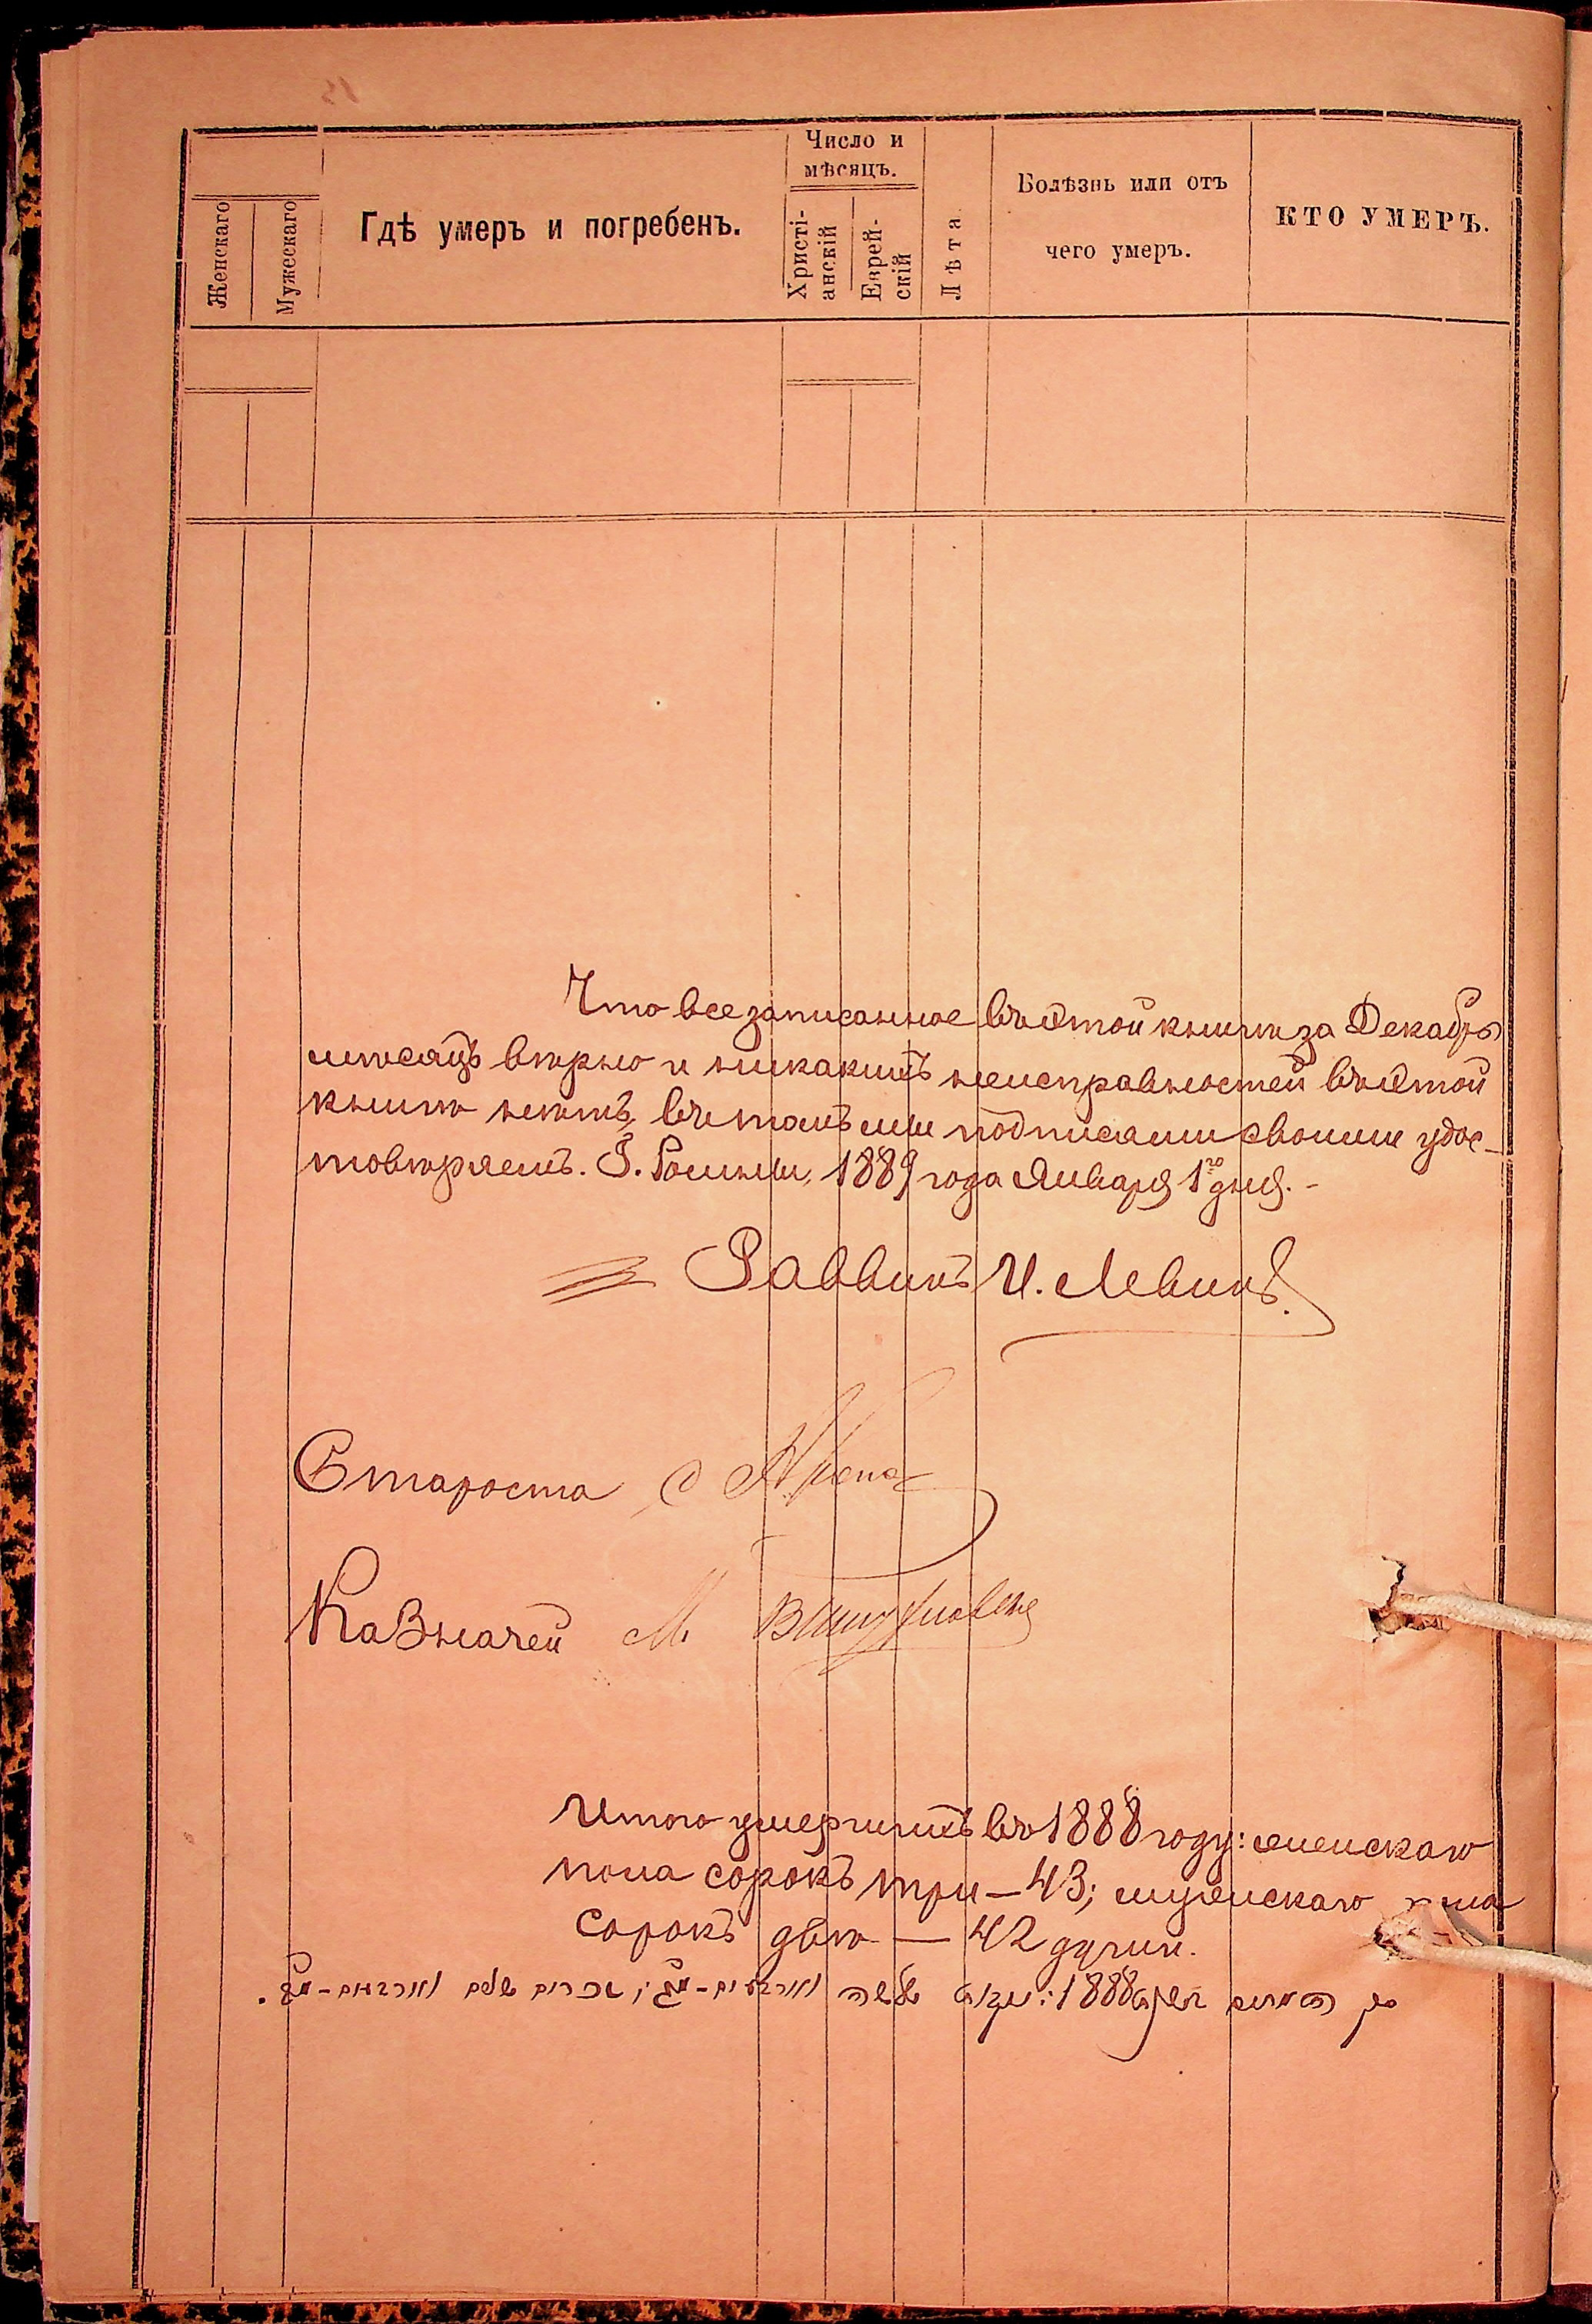 Женскаго
Мужескаго
Гдѣ умеръ и погребенъ.
Число и мѣсяцъ.
Христі-анскій
Еврей-скій
Лѣта
Болѣзнь или отъ чего умеръ.
КТО УМЕРЪ.
Что все записанное въ этой книгѣ за Декабрь
мѣсяцъ вѣрно и никакихъ неисправностей въ этой
книгѣ нѣтъ, въ томъ мы подписами своими удос-
товѣряемъ. Г. Ромны, 1889 года Января 1го дня. -
Раввинъ И. Левинъ.
Староста
Казначей М.
Итого умершихъ въ 1888 году: женскаго
пола сорокъ три - 43; мужескаго пола
сорокъ двѣ - 42 души.
1888